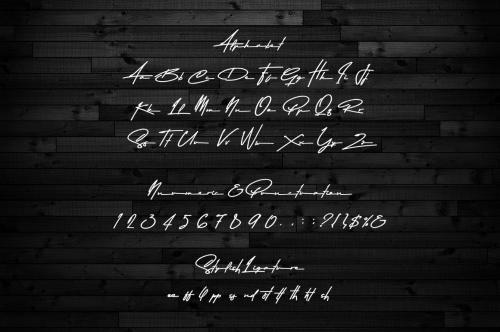 Alphabet
Aa Bb Cc Dd Ee Ff Gg Hh Ii Jj
Kk Ll Mm Nn Oo Pp Qq Rr
Ss Tt Uu Vv Ww Xx Yy Zz
Numeric & Punctuation
1 2 3 4 5 6 7 8 9 0 . , : ; ? ! ( $ % &
Stylish Ligature